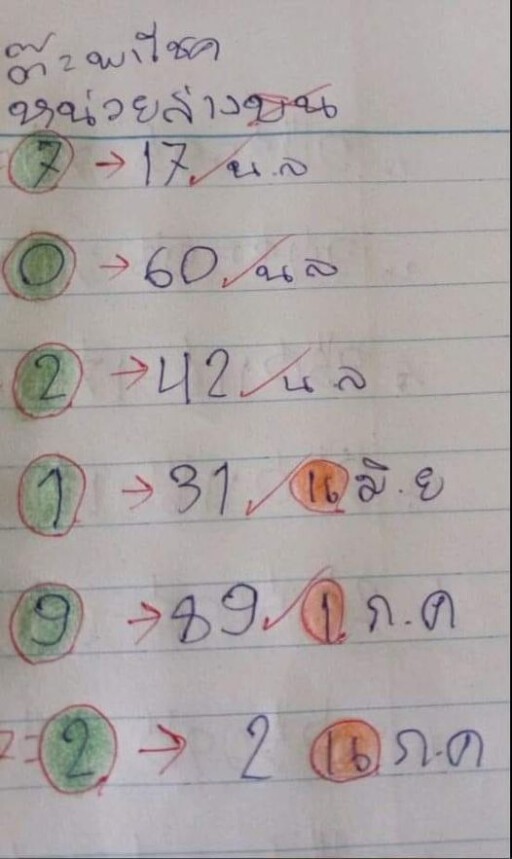 ต๊ะ พาโชค
หน่วยล่างบน
7 → 17 ✓ น.ล
0 → 60 ✓ น ล
2 → 42 ✓ น ล
1 → 31 ✓ 16 มิ.ย
9 → 89 ✓ 1 ก.ค
= 2 → 2 16 ก.ค